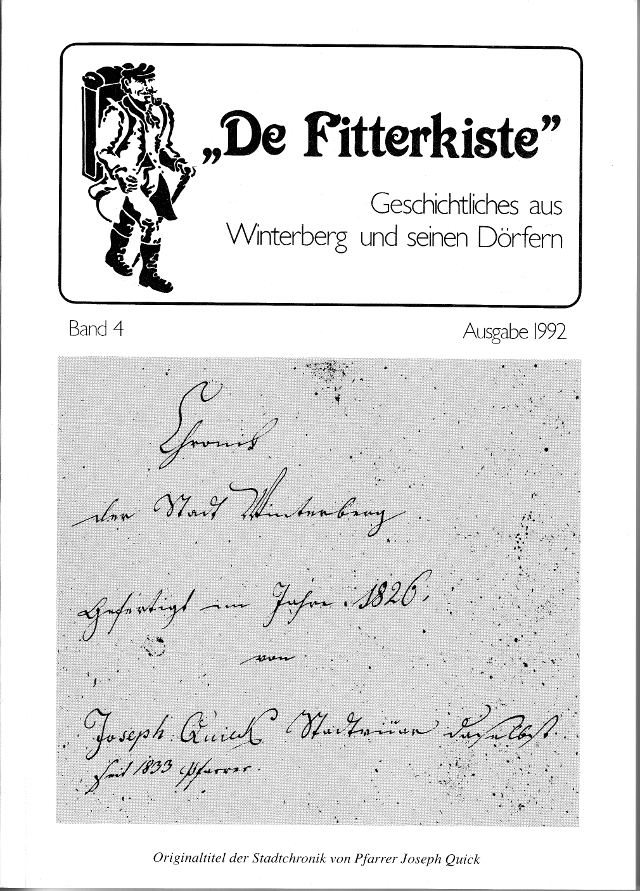 „De Fitterkiste”
Geschichtliches aus
Winterberg und seinen Dörfern
Band 4
Ausgabe 1992
Chronik
der Stadt Winterberg
Gefertigt im Jahre 1826.
von
Joseph Quick daselbst
seit 1833 Pfarrer.
Originaltitel der Stadtchronik von Pfarrer Joseph Quick